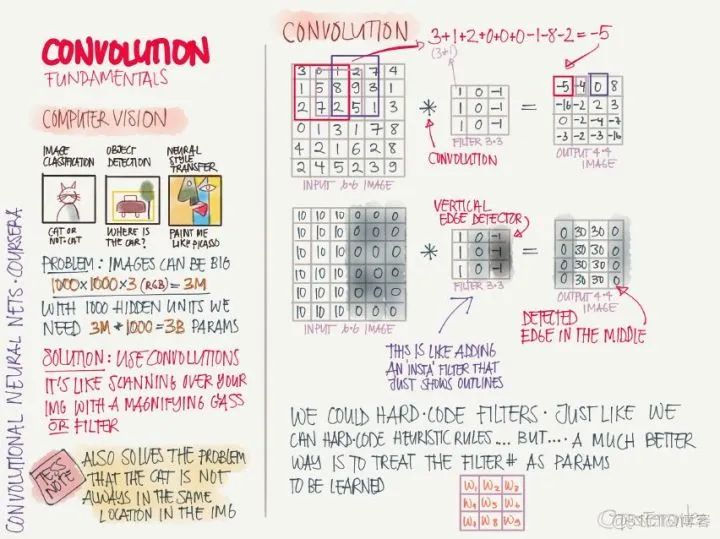 CONVOLUTION
FUNDAMENTALS
COMPUTER VISION
IMAGE CLASSIFICATION
OBJECT DETECTION
NEURAL STYLE TRANSFER
CAT OR NOT-CAT
WHERE IS THE CAR?
PAINT ME LIKE PICASSO
PROBLEM: IMAGES CAN BE BIG
1000×1000×3 (RGB) = 3M
WITH 1000 HIDDEN UNITS WE
NEED 3M*1000=3B PARAMS
SOLUTION: USE CONVOLUTIONS
IT'S LIKE SCANNING OVER YOUR
IMG WITH A MAGNIFYING GASS
OR FILTER
TESS NOTE
ALSO SOLVES THE PROBLEM
THAT THE CAT IS NOT
ALWAYS IN THE SAME
LOCATION IN THE IMG
CONVOLUTIONAL NEURAL NETS · COURSERA
CONVOLUTION
3+1+2+0+0+0-1-8-2=-5
(3*1)
3 0 1 2 7 4
1 5 8 9 3 1
2 7 2 5 1 3
0 1 3 1 7 8
4 2 1 6 2 8
2 4 5 2 3 9
INPUT 6·6 IMAGE
*
CONVOLUTION
1 0 -1
1 0 -1
1 0 -1
FILTER 3·3
=
-5 -4 0 8
-16 -2 2 3
0 -2 -4 -7
-3 -2 -3 -16
OUTPUT 4·4
IMAGE
10 10 10 0 0 0
10 10 10 0 0 0
10 10 10 0 0 0
10 10 10 0 0 0
10 10 10 0 0 0
10 10 10 0 0 0
INPUT 6·6 IMAGE
*
VERTICAL
EDGE DETECTOR
1 0 -1
1 0 -1
1 0 -1
FILTER 3·3
=
0 30 30 0
0 30 30 0
0 30 30 0
0 30 30 0
OUTPUT 4·4
IMAGE
THIS IS LIKE ADDING
AN 'INSTA' FILTER THAT
JUST SHOWS OUTLINES
DETECTED
EDGE IN THE MIDDLE
WE COULD HARD·CODE FILTERS · JUST LIKE WE
CAN HARD·CODE HEURISTIC RULES.... BUT.... A MUCH BETTER
WAY IS TO TREAT THE FILTER# AS PARAMS
TO BE LEARNED
W1 W2 W3
W4 W5 W6
W7 W8 W9